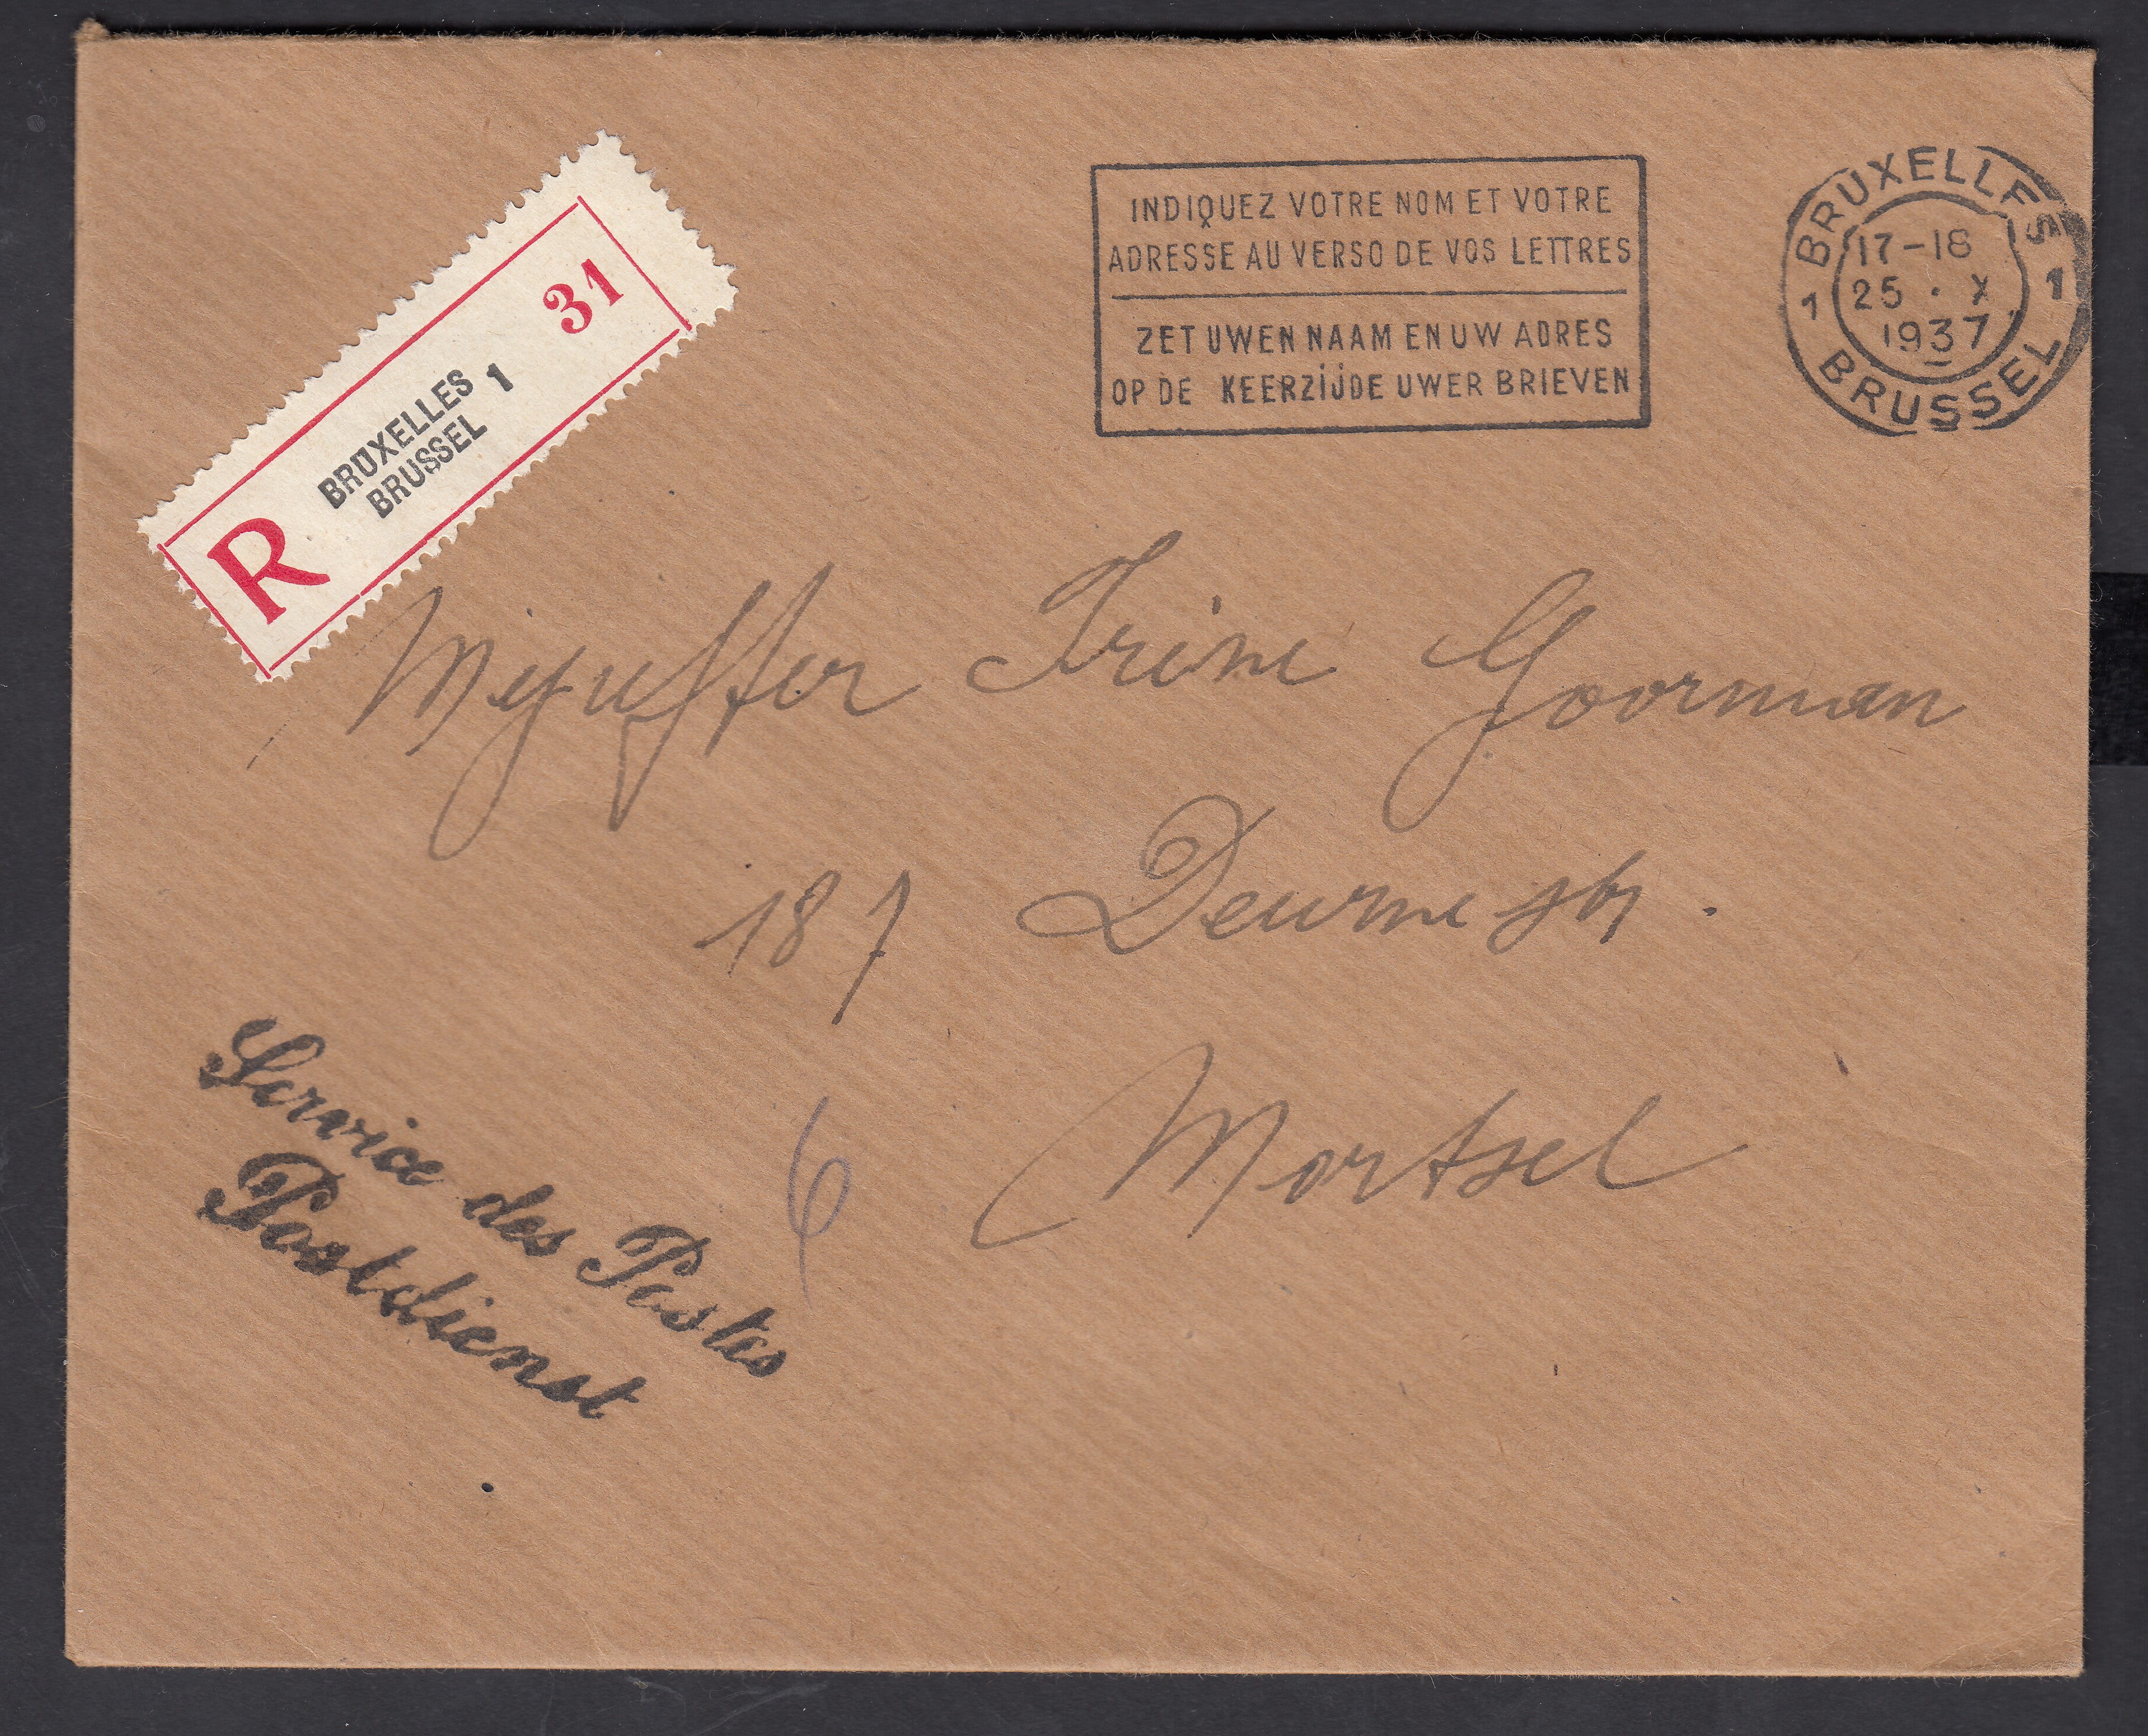 R
BRUXELLES
BRUSSEL
1
31
INDIQUEZ VOTRE NOM ET VOTRE
ADRESSE AU VERSO DE VOS LETTRES
ZET UWEN NAAM EN UW ADRES
OP DE KEERZIJDE UWER BRIEVEN
BRUXELLES
17-18
1 25 · X 1
1937
BRUSSEL
Mejuffer Irène Goorman
187 Deurne str.
Mortsel
6
Service des Postes
Postdienst